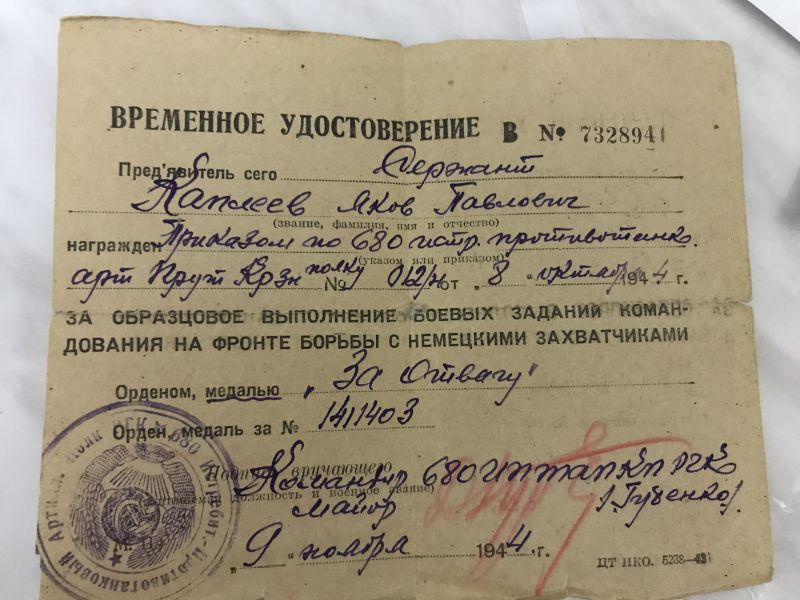 ВРЕМЕННОЕ УДОСТОВЕРЕНИЕ В № 732894
Пред'явитель сего Сержант
Яков Павлович
(звание, фамилия, имя и отчество)
награжден Приказом по 680 истр. противотанко.
(указом или приказом)
арт Прут Крзн полку № 012/н от "8" октября 1944 г.
ЗА ОБРАЗЦОВОЕ ВЫПОЛНЕНИЕ БОЕВЫХ ЗАДАНИЙ КОМАН-
ДОВАНИЯ НА ФРОНТЕ БОРЬБЫ С НЕМЕЦКИМИ ЗАХВАТЧИКАМИ
Орденом, медалью „За Отвагу"
Орден, медаль за № 1411403
Подпись вручающего
Командир 680 ИПТАП КП РГК
должность и военное звание)
Майор
М. П.
"9" ноября 1944 г.
ЦТ НКО. 5238—43